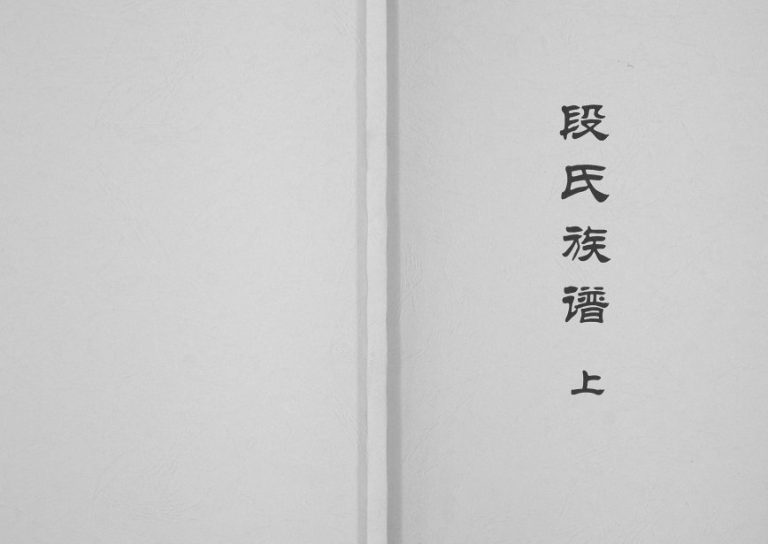 段氏族谱 上